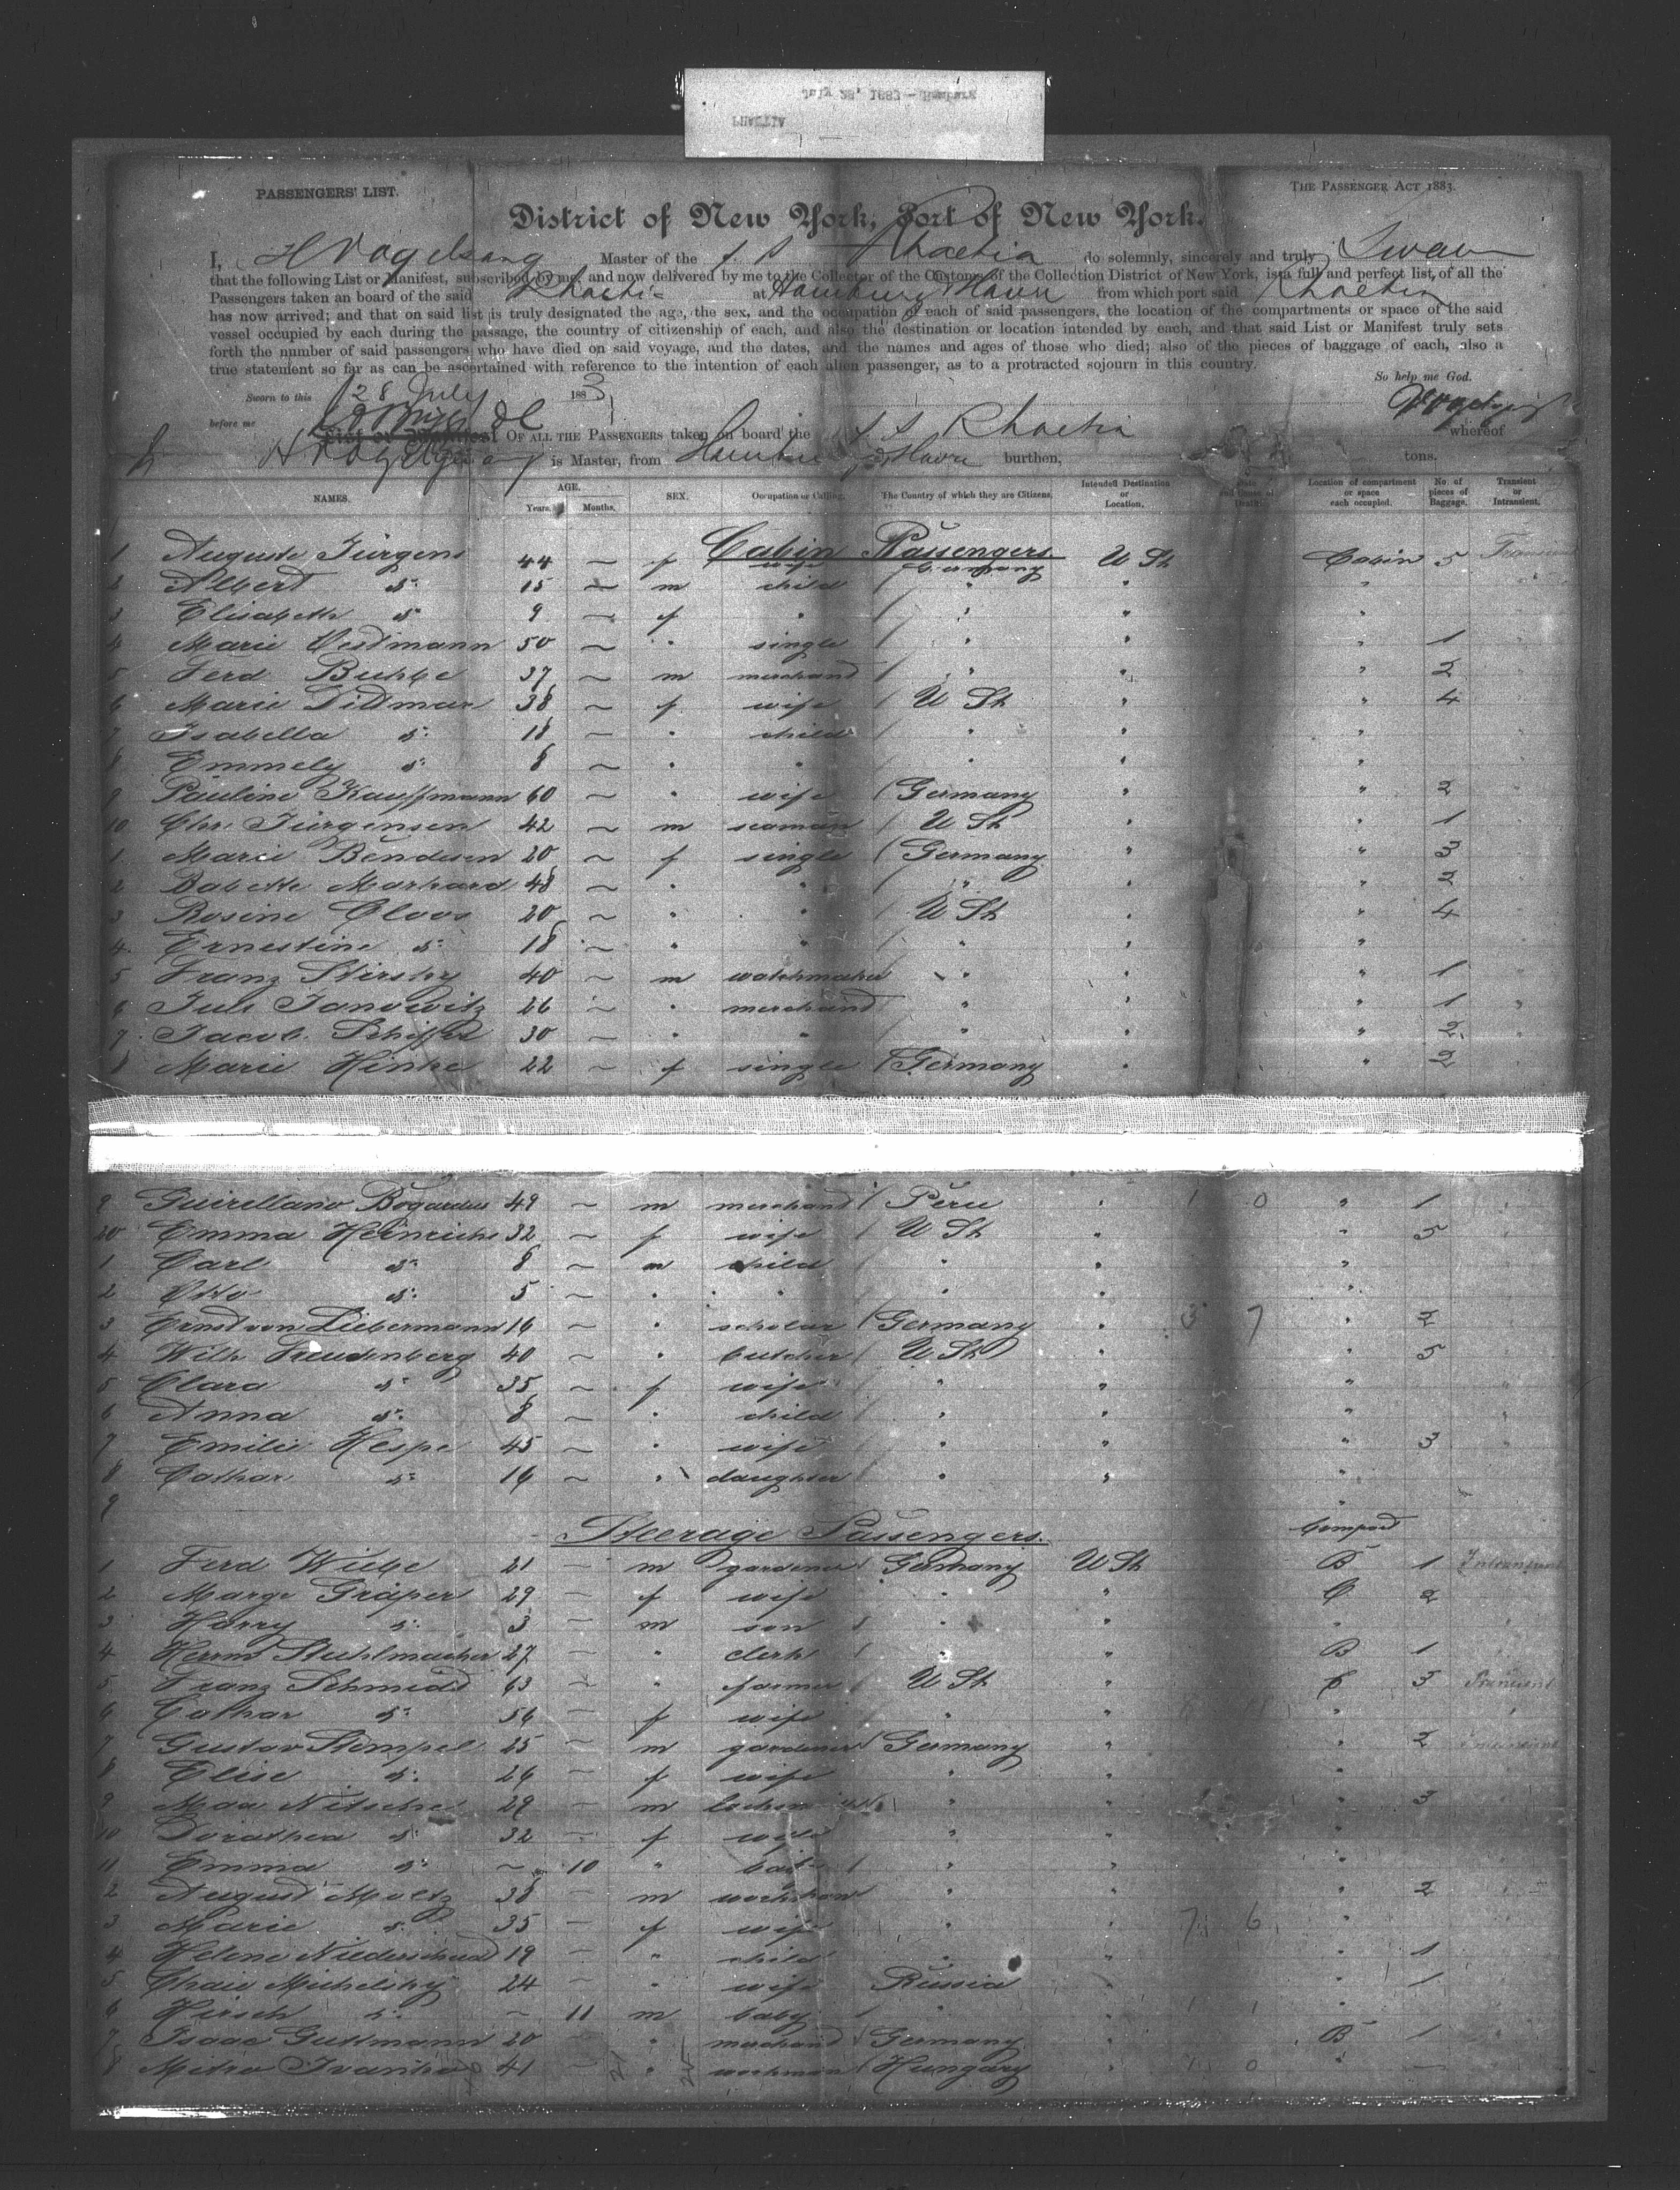 July 28, 1883 - Hamburg
RHAETIA
PASSENGERS' LIST.
THE PASSENGER ACT 1883.
District of New York, Port of New York.
I, H Vogelsang Master of the S. S Rhaetia do solemnly, sincerely and truly Swear
that the following List or Manifest, subscribed by me, and now delivered by me to the Collector of the Customs of the Collection District of New York, is a full and perfect list of all the
Passengers taken an board of the said Rhaetia at Hamburg Havre from which port said Rhaetia
has now arrived; and that on said list is truly designated the age, the sex, and the occupation of each of said passengers, the location of the compartments or space of the said
vessel occupied by each during the passage, the country of citizenship of each, and also the destination or location intended by each, and that said List or Manifest truly sets
forth the number of said passengers who have died on said voyage, and the dates, and the names and ages of those who died; also of the pieces of baggage of each, also a
true statement so far as can be ascertained with reference to the intention of each alien passenger, as to a protracted sojourn in this country.
So help me God.
Sworn to this 28 July 1883
before me
List or Manifest OF ALL THE PASSENGERS taken on board the S. S Rhaetia whereof
H Vogelsang is Master, from Hamburg & Havre burthen, tons.
NAMES. AGE. Years. Months. SEX. Occupation or Calling. The Country of which they are Citizens. Intended Destination or Location. Date and Cause of Death. Location of compartment or space each occupied. No. of pieces of Baggage. Transient or Intransient.
Cabin Passengers
1 Auguste Jürgens 44 ~ f wife Germany U St Cabin 5 Transient
2 Albert do 15 ~ m child " " "
3 Elisabeth do 9 ~ f " " " "
4 Marie Oestmann 50 ~ " single " " " 1 "
5 Ferd Buhbe 37 ~ m merchand " " " 2 "
6 Marie Dittmar 38 ~ f wife U St " " 4 "
7 Isabella do 18 ~ " child " " "
8 Emmely do 8 ~ " " " " "
9 Pauline Kauffmann 60 ~ " wife Germany " " 2 "
10 Chr. Jürgensen 42 ~ m seaman U St " " 1 "
1 Marie Bendixen 20 ~ f single Germany " " 3 "
2 Babette Marhard 48 ~ " " " " " 2 "
3 Rosine Cloos 20 ~ " " U St " " 4 "
4 Ernestine do 18 ~ " " " " "
5 Franz Stirsky 40 ~ m watchmaker " " " 1 "
6 Jul. Janowitz 26 ~ " merchand " " " 1 "
7 Jacob Schiffer 30 ~ " " " " " 2 "
8 Marie Hinke 22 ~ f single Germany " " 2 "
9 Guirellano Bogardus 49 ~ m merchand Peru " 1 0 " 1 "
20 Emma Heinrichs 32 ~ f wife U St " " 5 "
1 Carl do 8 ~ m child " " "
2 Otto do 5 ~ " " " " "
3 Ernst von Liebermann 16 ~ " scholar Germany " 3 7 " 2 "
4 Wilh Freudenberg 40 ~ " butcher U St " " 5
5 Clara do 35 ~ f wife " " "
6 Anna do 8 ~ " child " " "
7 Emilie Hespe 45 ~ " wife " " " 3 "
8 Cathar do 16 ~ " daughter " " "
9 "
Steerage Passengers.
Compart
1 Ferd Wiebe 21 ~ m gardener Germany U St B 1 Intransient
2 Marge Gräper 29 ~ f wife " " C 2
3 Harry do 3 ~ m son " " "
4 Herm Stuhlmacher 27 ~ " clerk " " B 1 "
5 Franz Schmidt 63 ~ " farmer U St " C 3 Transient
6 Cathar do 56 ~ f wife " " "
7 Gustav Stempel 25 ~ m gardener Germany " " 2 Intransient
8 Elise do 26 ~ f wife " " "
9 Max Nitsche 29 ~ m " " " 3
10 Dorathea do 32 ~ f wife " " "
11 Emma do ~ 10 " " " "
2 August Moltz 38 ~ m workman " " " 2
3 Marie do 35 ~ f wife " " 7 6 "
4 Helene 19 ~ " child " " " 1
5 Chaie Michelsky 24 ~ " wife Russia " " 1
6 Hirsch do ~ 11 m baby " " 1 1 "
7 Isaac Guttmann 20 " merchand Germany " B 1
8 Mitro Ivanko 41 ~ " workman Hungary " 7 0 " ~